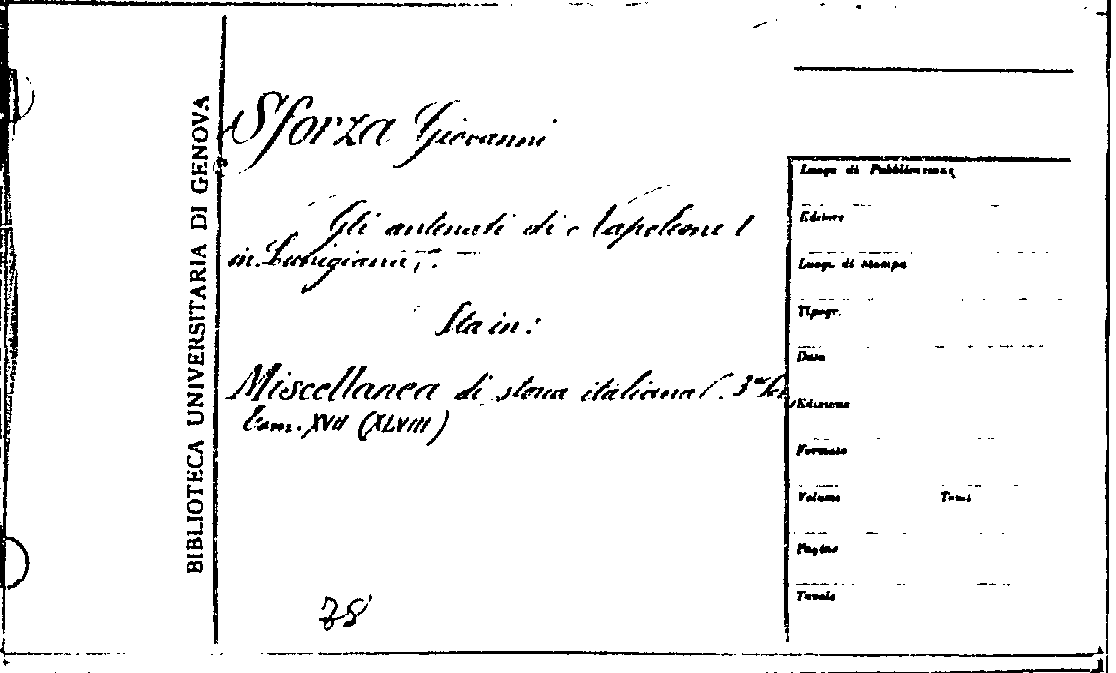 BIBLIOTECA UNIVERSITARIA DI GENOVA
Sforza Giovanni
Gli antenati di Napoleone I
in Lunigiana.
Sta in:
Miscellanea di storia italiana. 3ª Ser,
Tom. XVII (XLVIII)
Luogo di Pubblicazione
Editore
Luogo di stampa
Tipogr.
Data
Edizione
Formato
Volume Tomi
Pagine
Tavole